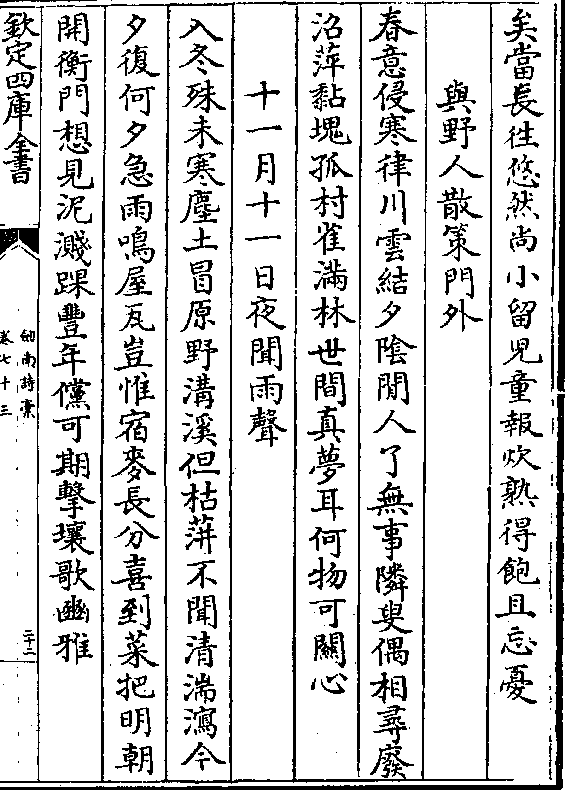 矣當長往悠然尚小留児童報炊熟得飽且忘憂
與野人散策門外
春意侵寒律川雲結夕陰閒人了無事隣叟偶相尋廢
沼萍黏塊孤村雀滿林世間真夢耳何物可關心
十一月十一日夜聞雨聲
入冬殊未寒塵土冒原野溝溪但枯萍不聞清湍瀉今
夕復何夕急雨鳴屋瓦豈惟宿麥長分喜到菜把明朝
開衡門想見泥濺踝豐年儻可期擊壤歌豳雅
欽定四庫全書
劒南詩稾
卷七十三
二十二